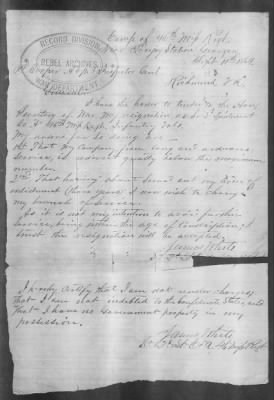 Camp of 44th Miss Regt
Near Lovejoy Station Georgia
Sept 10th 1864
RECORD DIVISION
REBEL ARCHIVES
WAR DEPARTMENT
S. Cooper Adjt & Inspector Genl
Richmond Va
I have the honor to tender to the Hon
Secretary of War my resignation as 2nd Lieutenant
Co
My reasons for so doing are
1st That my Company from long and arduous
service, is reduced greatly below the minimum
number.
2nd That having about served out my term of
enlistment (three years) I now wish to change
my branch of service.
As it is not my intention to avoid further
service, being within the age of conscription, I
trust this resignation will be accepted,
James White
I hereby certify that I am not under charges
that I am not indebted to the Confederate States, and
that I have no Government property in my
possession.
James White